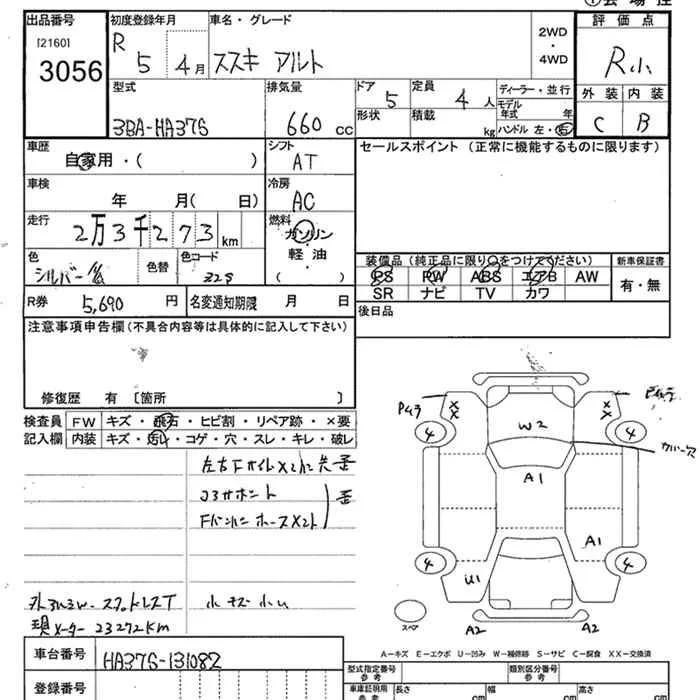 出品番号 初度登録年月 車名・グレード 評価点
[2160] R 2WD
3056 5 4月 スズキ アルト ・ R小
4WD
型式 排気量 ドア 定員 ディーラー・並行 外装 内装
5 4人 モデル年式 年
3BA-HA37S 660cc 形状 積載 kg ハンドル 左・右 C B
車歴 シフト セールスポイント (正常に機能するものに限ります)
自家用・( ) AT
車検 冷房
年 月( 日) AC
走行 燃料
2万3千273km ガソリン
色 色替 色コード 軽油 装備品 (純正品に限り○をつけてください) 新車保証書
シルバー 32S ( ) PS PW ABS エアB AW 有・無
SR ナビ TV カワ
R券 5,690円 名変通知期限 月 日 後日品
注意事項申告欄(不具合内容等は具体的に記入して下さい)
修復歴 有 〔箇所 〕
検査員 FW キズ・飛石・ヒビ割・リペア跡・×要
記入欄 内装 キズ・汚れ・コゲ・穴・スレ・キレ・破レ
コアサポート 歪
現メーター 23272KM
XX XX
4 4
W2
A1
A1
4 4
U1
スペア A2 A2
A-キズ E-エクボ U-凹み W-補修跡 S-サビ C-腐食 XX-交換済
車台番号 HA37S-131082 型式指定番号 参考 類別区分番号 参考
登録番号 車庫証明用 参考 長さ cm 幅 cm 高さ cm